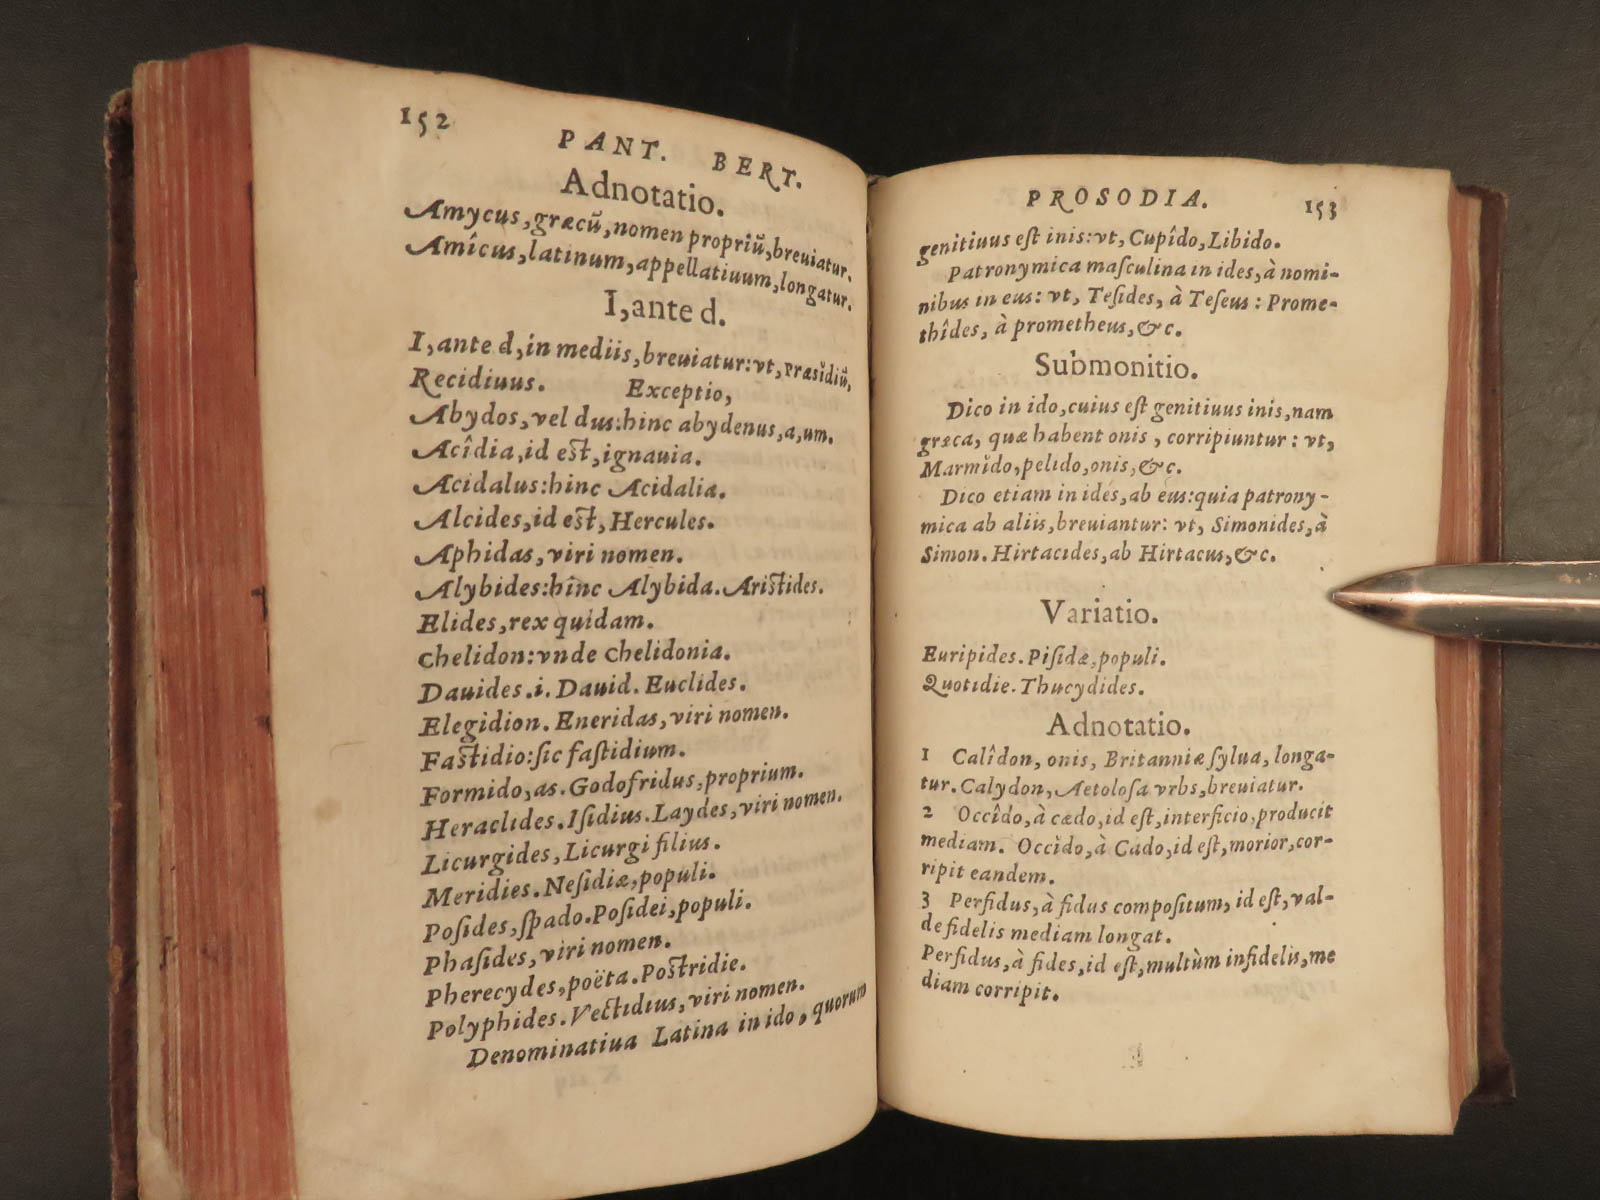 152
PANT. BERT.
Adnotatio.
Amycus, græcũ, nomen propriũ, breuiatur.
Amîcus, latinum, appellatiuum, longatur.
I, ante d.
I, ante d, in mediis, breuiatur: vt, Præsĭdiũ,
Recidiuus. Exceptio,
Abydos, vel dus: hinc abydenus, a, um.
Acîdia, id est, ignauia.
Acidalus: hinc Acidalia.
Alcides, id est, Hercules.
Aphidas, viri nomen.
Alybides: hînc Alybida. Aristides.
Elides, rex quidam.
Chelidon: vnde Chelidonia.
Dauides .i. Dauid. Euclides.
Elegidion. Eneridas, viri nomen.
Fastidio: sic fastidium.
Formido, as. Godofridus, proprium.
Heraclides. Isidius. Laydes, viri nomen.
Licurgides, Licurgi filius.
Meridies. Nesidiæ, populi.
Posides, spado. Posidei, populi.
Phasides, viri nomen.
Pherecydes, poëta. Postridie.
Polyphides. Vectidius, viri nomen.
Denominatiua Latina in ido, quorum
PROSODIA. 153
genitiuus est inis: vt, Cupîdo, Libido.
Patronymica masculina in ides, à nomi-
nibus in eus: vt, Tesides, à Teseus: Prome-
thîdes, à prometheus, &c.
Submonitio.
Dico in ido, cuius est genitiuus inis, nam
græca, quæ habent onis, corripiuntur: vt,
Marmĭdo, pelido, onis, &c.
Dico etiam in ides, ab eus: quia patrony-
mica ab aliis, breuiantur: vt, Simonides, à
Simon. Hirtacides, ab Hirtacus, &c.
Variatio.
Euripides. Pisidæ, populi.
Quotidie. Thucydides.
Adnotatio.
1 Calîdon, onis, Britanniæ sylua, longa-
tur. Calydon, Aetolosa vrbs, breuiatur.
2 Occîdo, à cædo, id est, interficio, producit
mediam. Occĭdo, à Cado, id est, morior, cor-
ripit eandem.
3 Perfidus, à fidus compositum, id est, val-
de fidelis mediam longat.
Perfidus, à fides, id est, multùm infidelis, me
diam corripit.